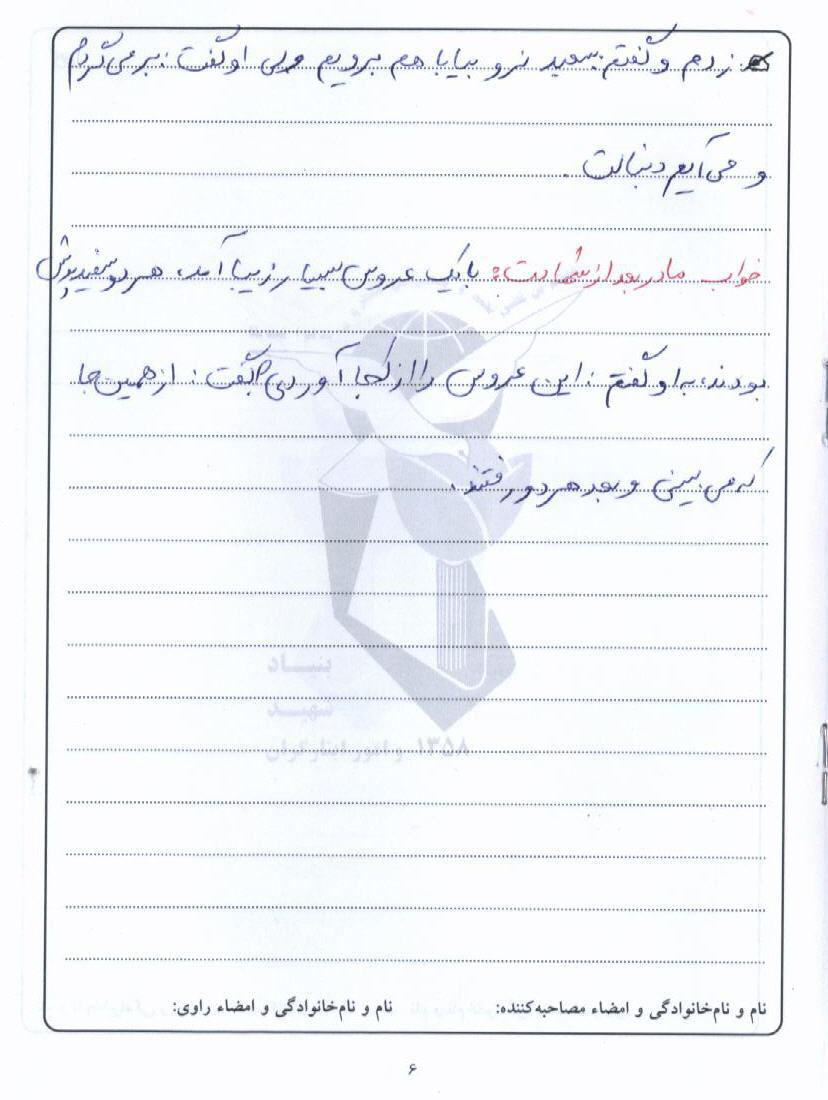 زدم و گفتم: سعید نرو بیا با هم برویم ولی او گفت: برمی گردم
و می آیم دنبالت.
خواب مادر بعد از شهادت: با یک عروس بسیار زیبا آمد، هر دو سفیدپوش
بودند، به او گفتم: این عروس را از کجا آوردی؟ گفت: از همین جا
که می بینی و بعد هر دو رفتند.
بنیاد
شهید
و امور ایثارگران ۱۳۵۸
نام و نام‌خانوادگی و امضاء مصاحبه‌کننده: نام و نام‌خانوادگی و امضاء راوی:
۶